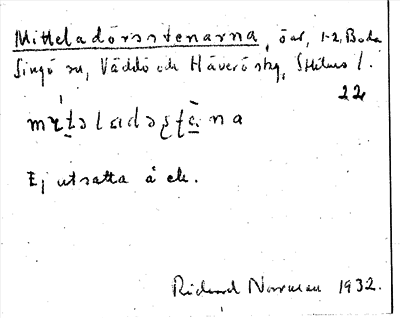 Mitteladörsstenarna, öar, 1-2, Boda
Singö sn, Väddö och Häverö shg, Sthlms l.
22
mɪt̲əladəʂt̲ɛ̲̀na
Ej utsatta å ek.
Rickard Norrman 1932.